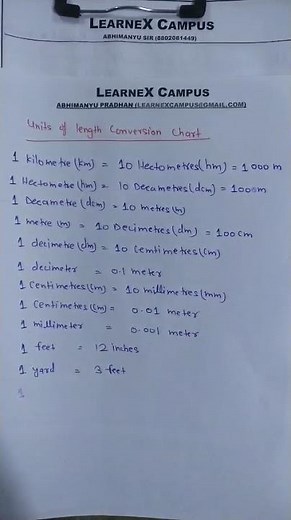 LEARNEX CAMPUS
ABHIMANYU SIR (8802061449)
LEARNEX CAMPUS
ABHIMANYU PRADHAN (LEARNEXCAMPUS@GMAIL.COM)
Units of length Conversion Chart
1 kilometre (km) = 10 Hectometres (hm) = 1000 m
1 Hectometre (hm) = 10 Decametres (dcm) = 1000m
1 Decametre (dcm) = 10 metres (m)
1 metre (m) = 10 Decimetres (dm) = 100 cm
1 decimetre (dm) = 10 Centimetres (cm)
1 decimeter = 0.1 meter
1 Centimetres (cm) = 10 millimetres (mm)
1 Centimetres (cm) = 0.01 meter
1 millimeter = 0.001 meter
1 feet = 12 inches
1 yard = 3 feet
1